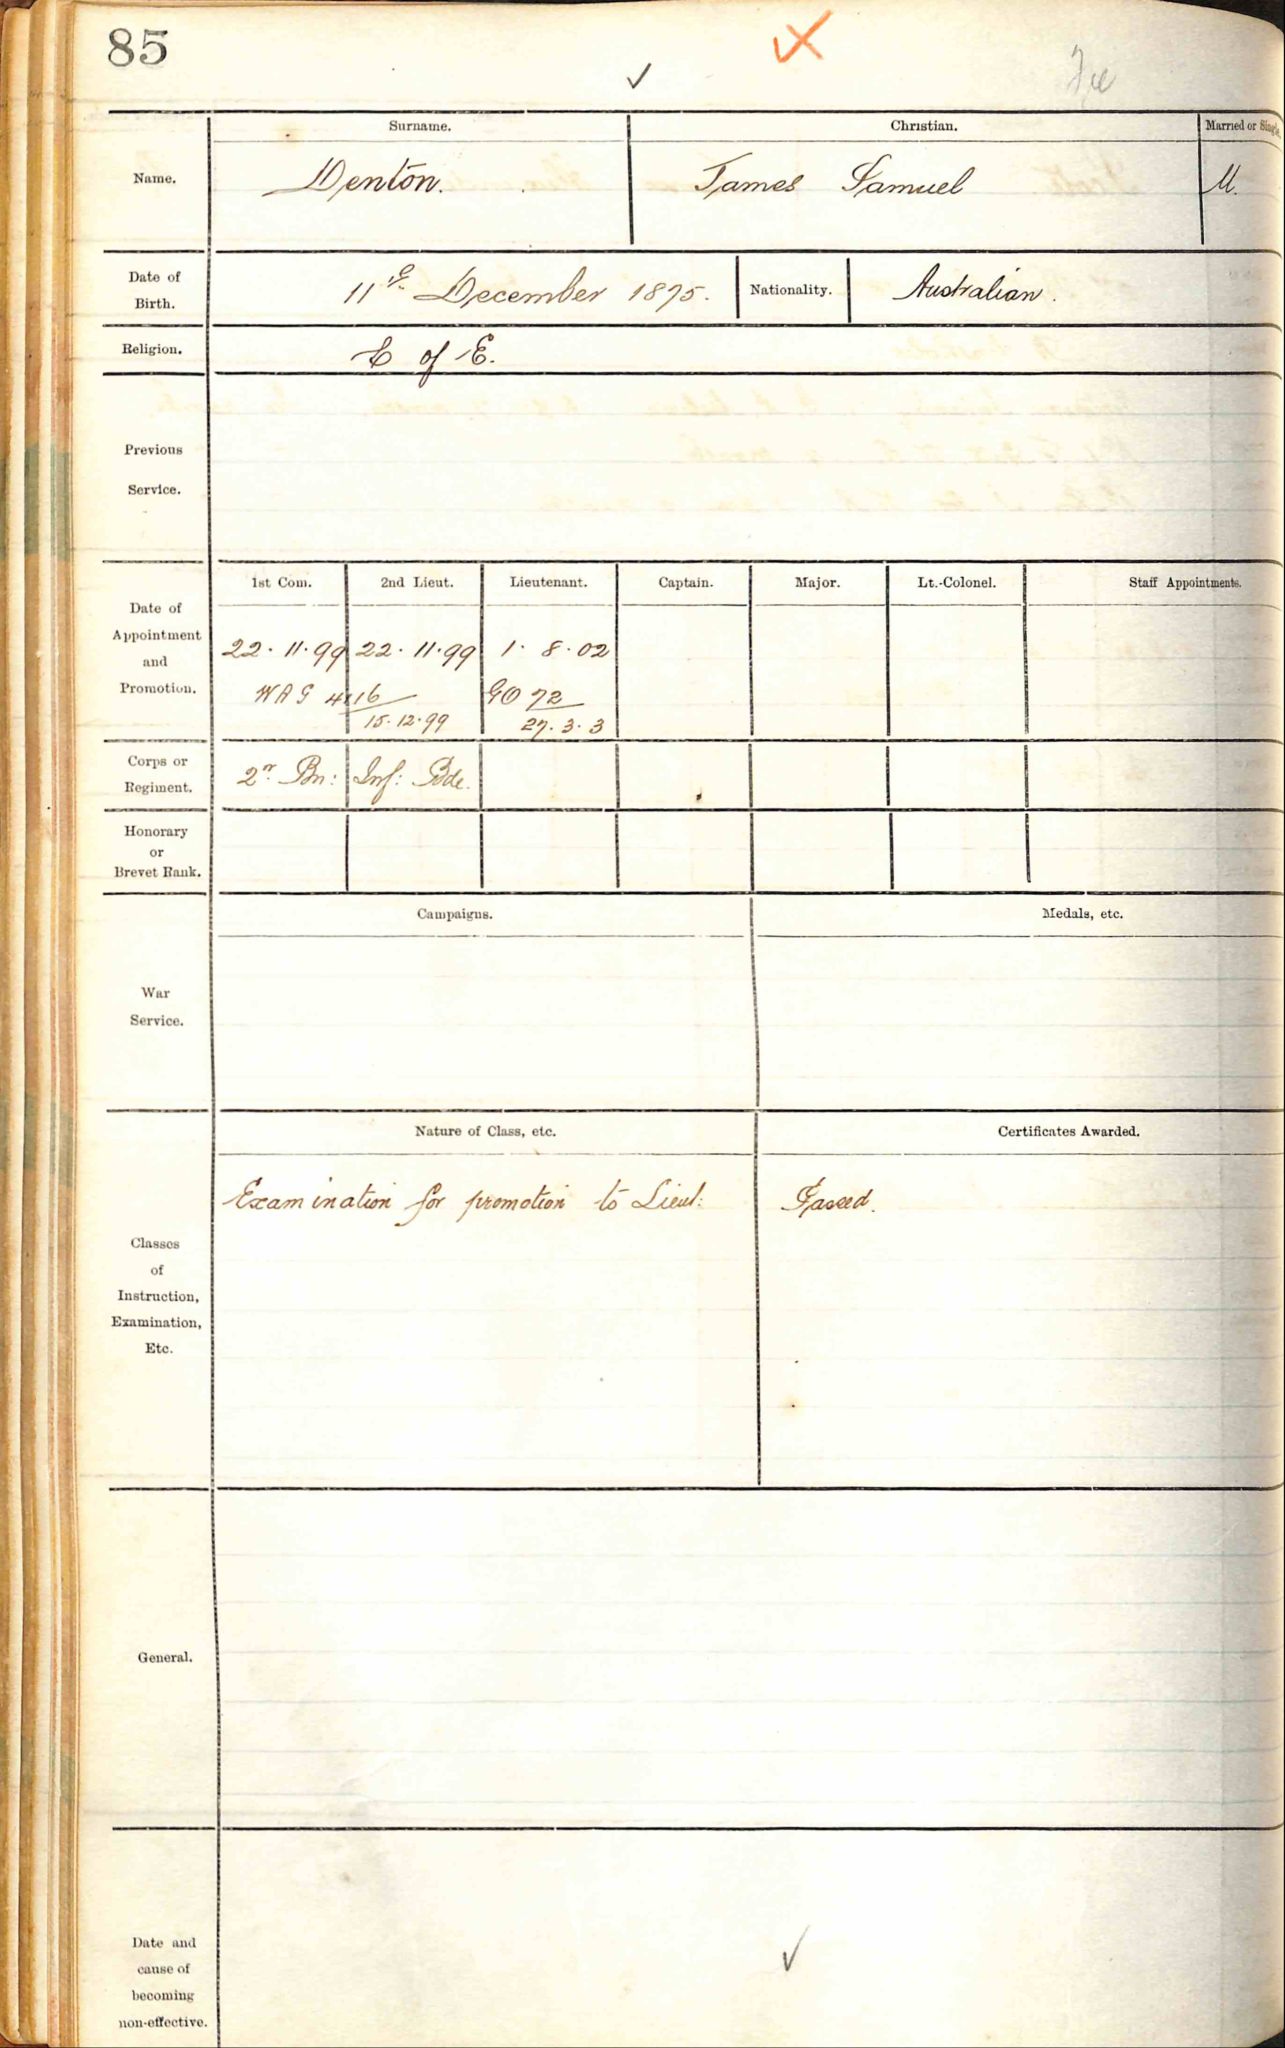 85
Surname. Christian. Married or Single.
Name. Denton. James Samuel M.
Date of
Birth. 11th December 1875. Nationality. Australian.
Religion. C of E.
Previous
Service.
1st Com. 2nd Lieut. Lieutenant. Captain. Major. Lt.-Colonel. Staff Appointments.
Date of
Appointment
and
Promotion.
22.11.99 22.11.99 1.8.02
WAG 416 GO 72
15.12.99 27.3.3
Corps or
Regiment. 2nd Bn: Inf: Bde.
Honorary
or
Brevet Rank.
Campaigns. Medals, etc.
War
Service.
Nature of Class, etc. Certificates Awarded.
Examination for promotion to Lieut: Passed.
Classes
of
Instruction,
Examination,
Etc.
General.
Date and
cause of
becoming
non-effective.